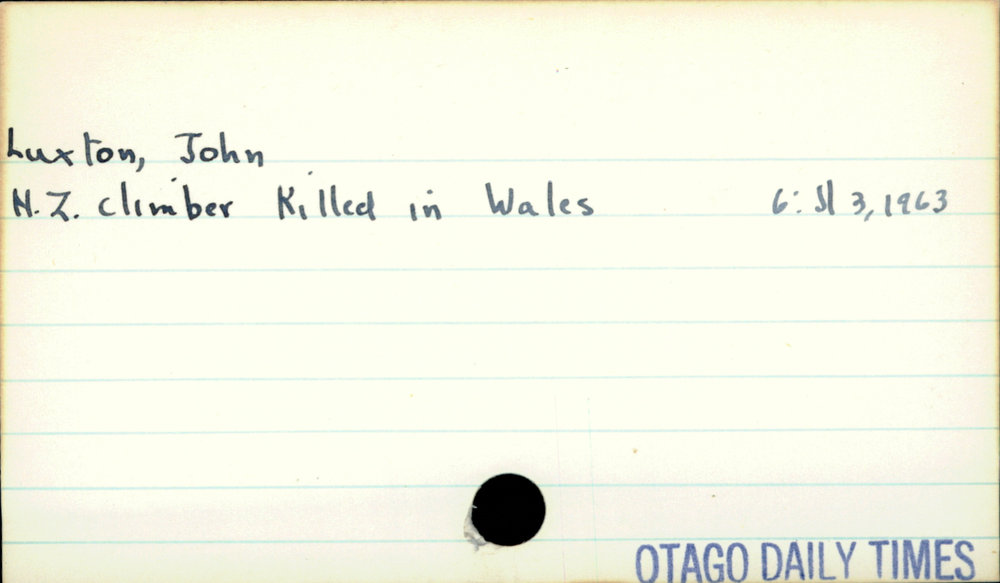 Luxton, John
N.Z. climber Killed in Wales 6: Jl 3, 1963
OTAGO DAILY TIMES